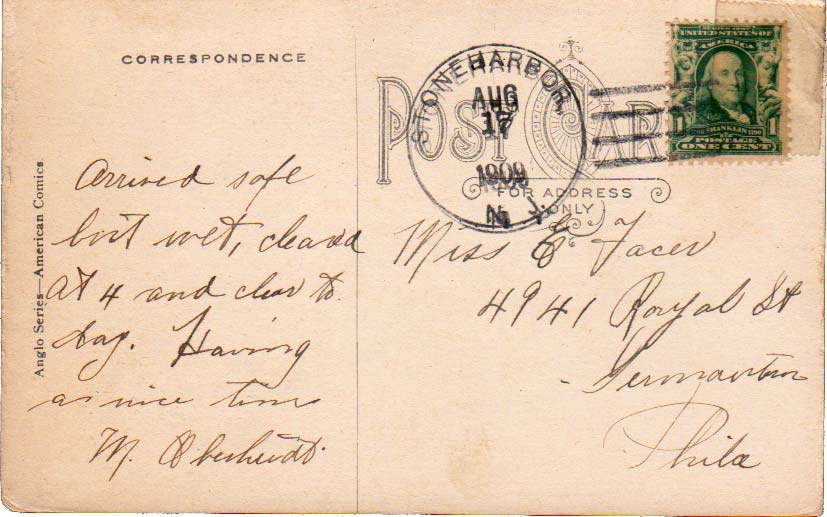 CORRESPONDENCE
Anglo Series—American Comics
Arrived safe
but wet, cleared
at 4 and clear to
day. Having
a nice time
M.
POST CARD
FOR ADDRESS
ONLY
STONE HARBOR,
AUG
17
1909
N. J.
SERIES 1902
UNITED STATES OF
AMERICA
1 FRANKLIN 1790 1
POSTAGE
ONE CENT
Miss E Facer
4941 Royal St
Germantown
Phila